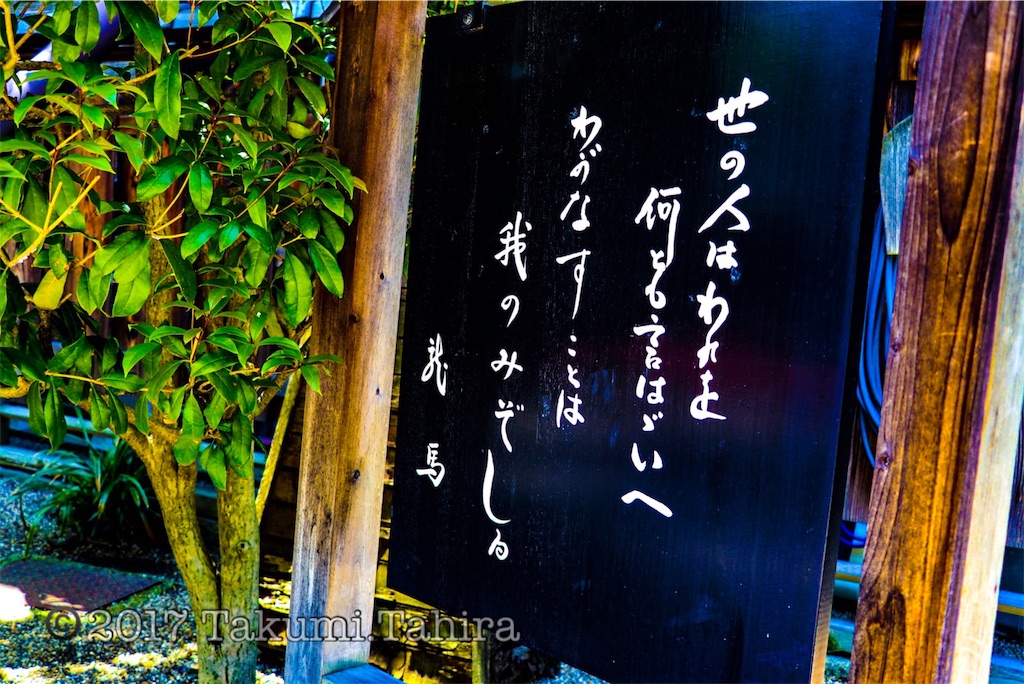 世の人はわれを
何とも言はゞいへ
わがなすことは
我のみぞしる
龍馬
© 2017 Takumi Tahira